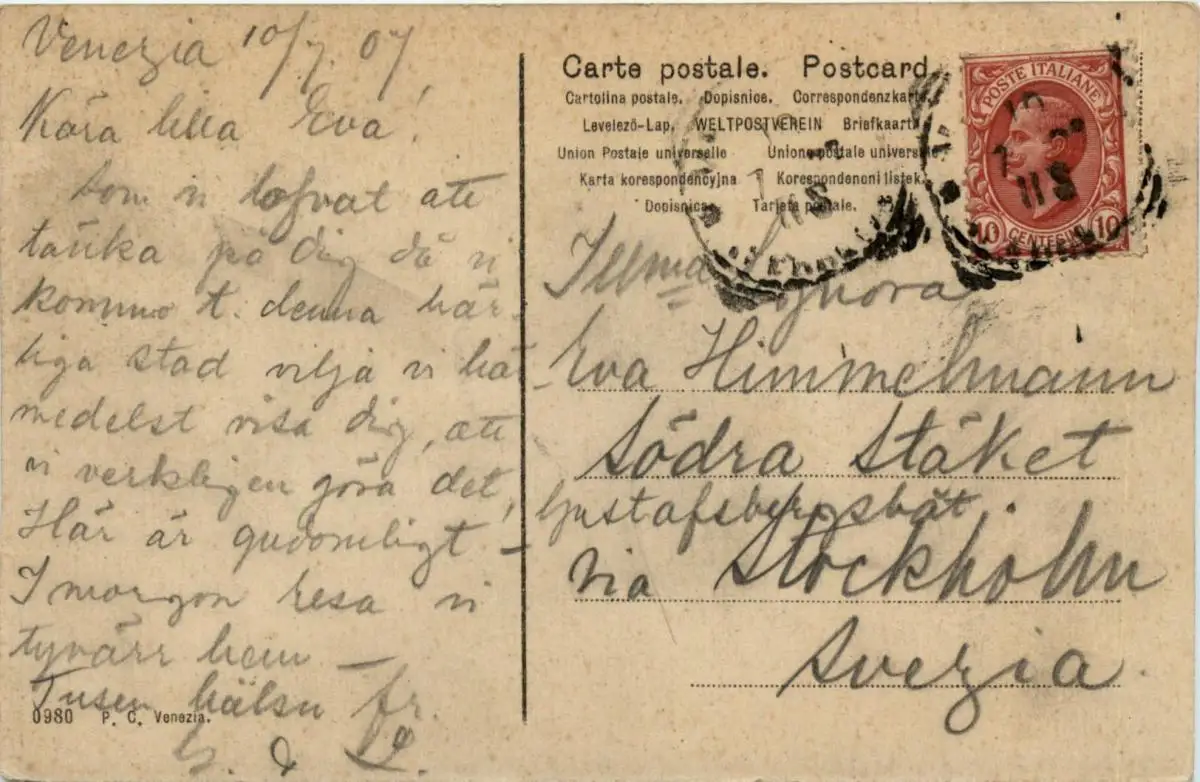 Venezia 10/7 07
Kära lilla Eva!
Som vi lofvat att
tänka på dig då vi
kommo t. denna här-
liga stad vilja vi hä
medelst visa dig, att
vi verkligen göra det,
Här är gudomligt –
I morgon resa vi
tyvärr hem –
Tusen hälsn fr.
G. &
0980 P. C. Venezia.
Carte postale. Postcard
Cartolina postale. Dopisnice. Correspondenzkarte
Levelező-Lap. WELTPOSTVEREIN Briefkaarta
Union Postale universelle Unione postale universelle
Karta korespondencyjna Korespondenoni listek.
Dopisnica Tarjeta postale.
POSTE ITALIANE
10 CENTESIMI 10
Illma Signora
Eva Himmelmann
Södra Stäket
Gustafsbergsbåt.
via Stockholm
Svezia.